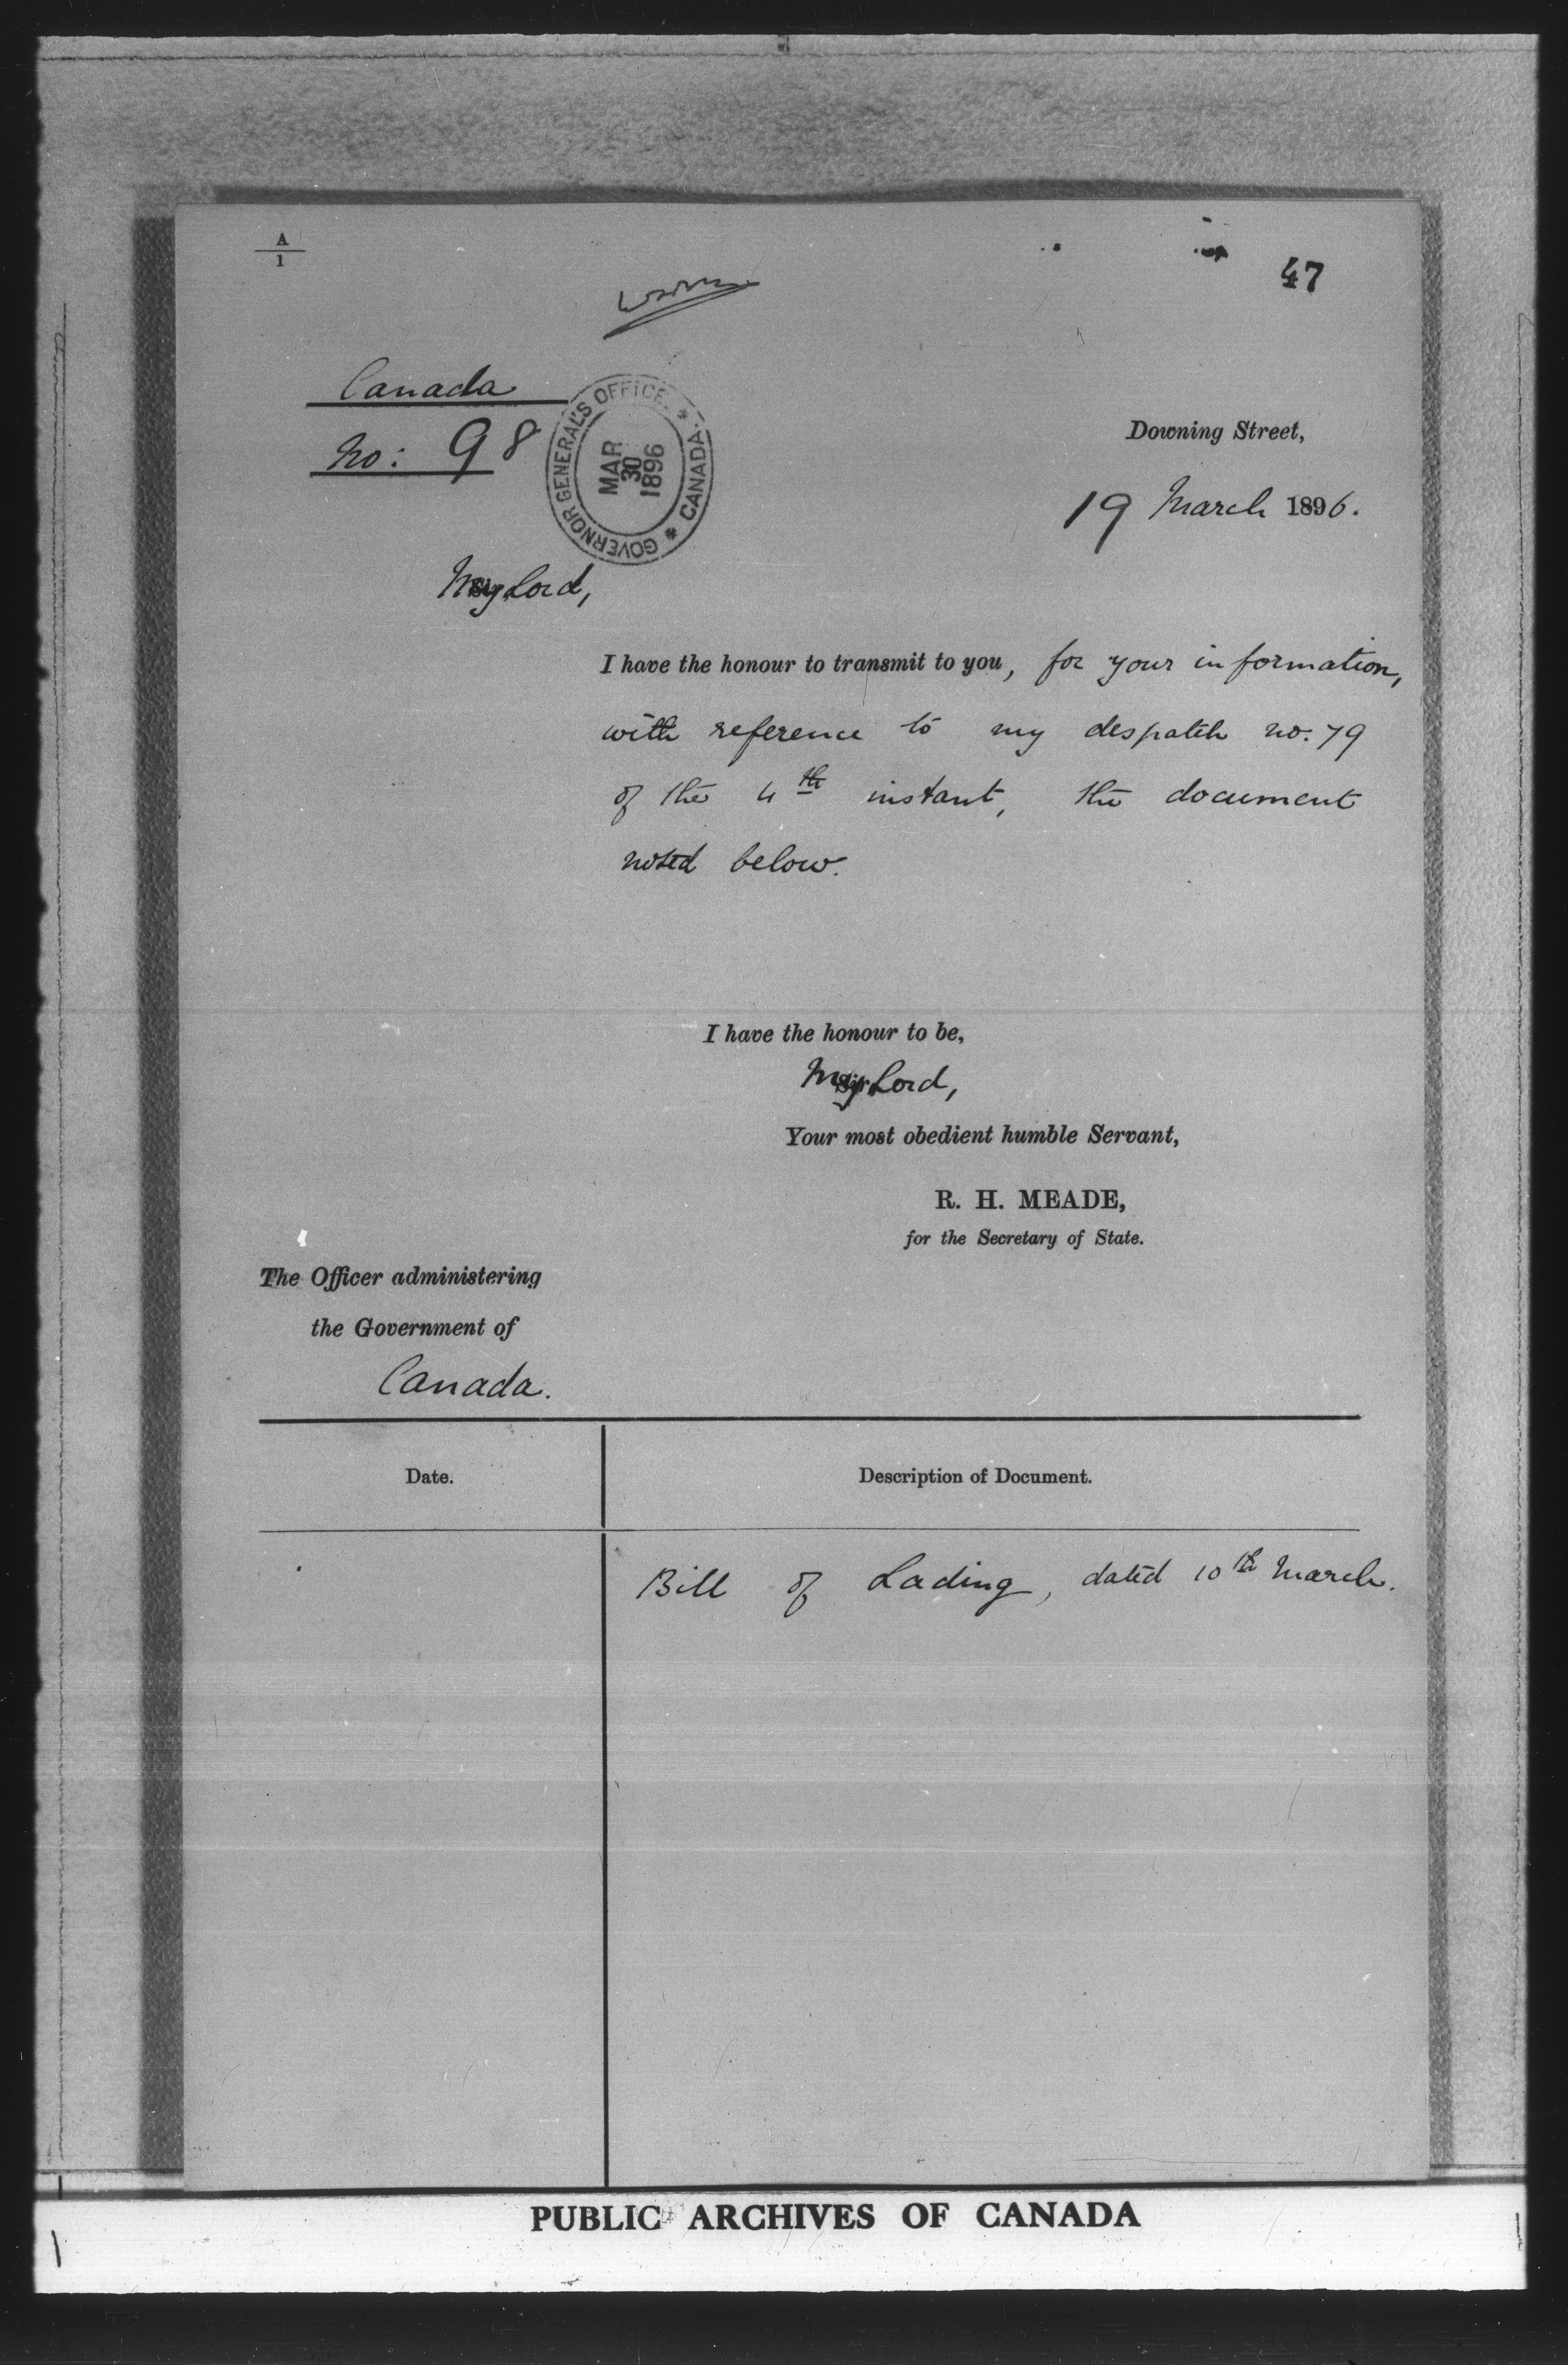 A
1
47
Canada
No: 98
GOVERNOR GENERAL'S OFFICE. * CANADA. *
MAR
30
1896
Downing Street,
19 March 1896.
My Lord,
I have the honour to transmit to you, for your information,
with reference to my despatch no. 79
of the 4th instant, the document
noted below.
I have the honour to be,
My Lord,
Your most obedient humble Servant,
R. H. MEADE,
for the Secretary of State.
The Officer administering
the Government of
Canada.
Date. Description of Document.
Bill of Lading, dated 10th March.
PUBLIC ARCHIVES OF CANADA